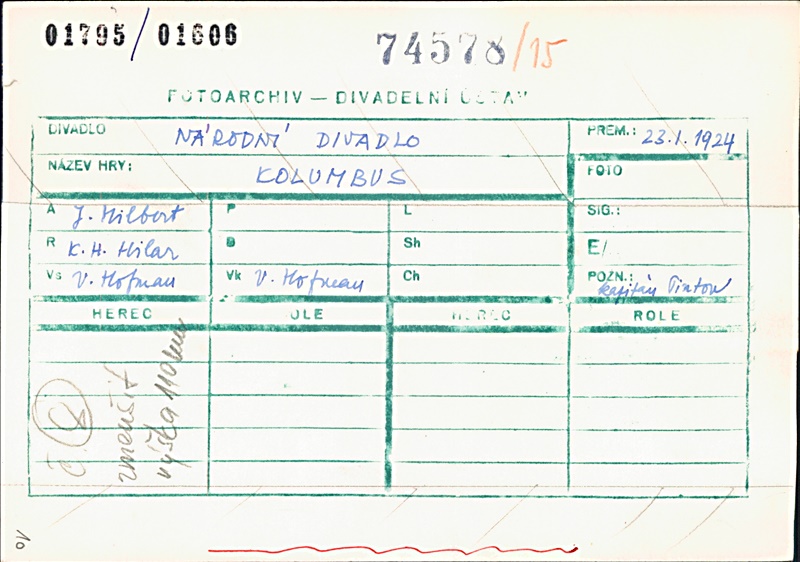 01795/01606
74578/15
FOTOARCHIV — DIVADELNÍ ÚSTAV
DIVADLO NÁRODNÍ DIVADLO PREM.: 23.1.1924
NÁZEV HRY: KOLUMBUS FOTO
A J. Hilbert P L SIG.:
R K. H. Hilar D Sh E/
Vs V. Hofman Vk V. Hofman Ch POZN.: kapitán
HEREC ROLE HEREC ROLE
č. 8
zmenšit
výška 110 mm
10